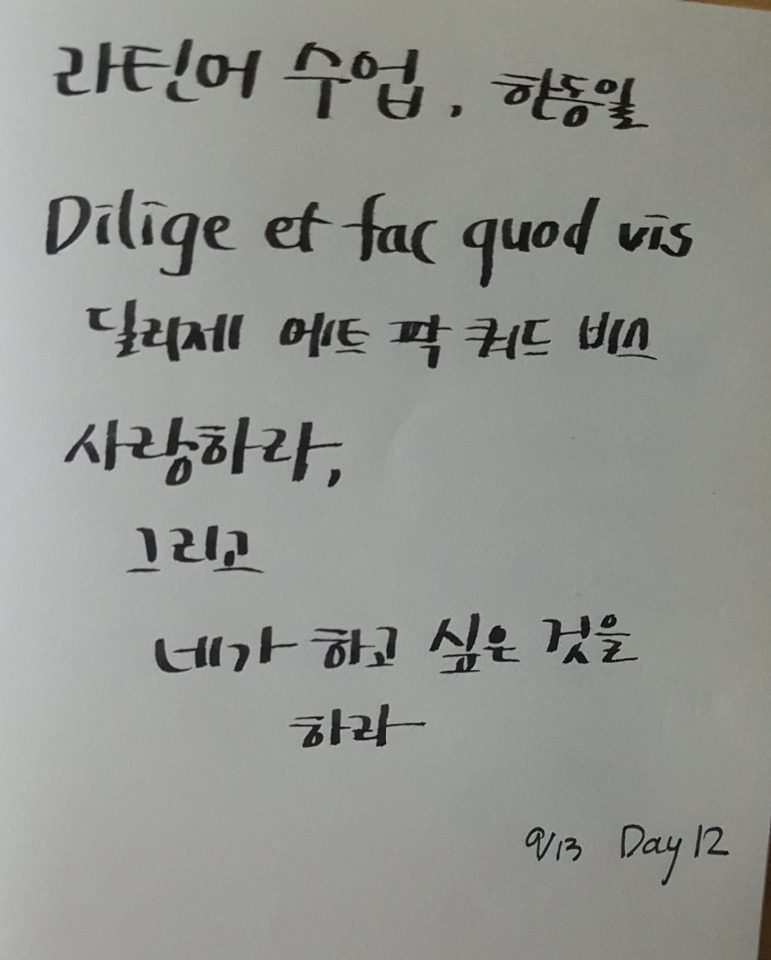 라틴어 수업, 한동일
Dīlīge et fac quod vīs
딜리제 에트 팍 쿼드 비스
사랑하라,
그리고
네가 하고 싶은 것을
하라
9/13 Day 12